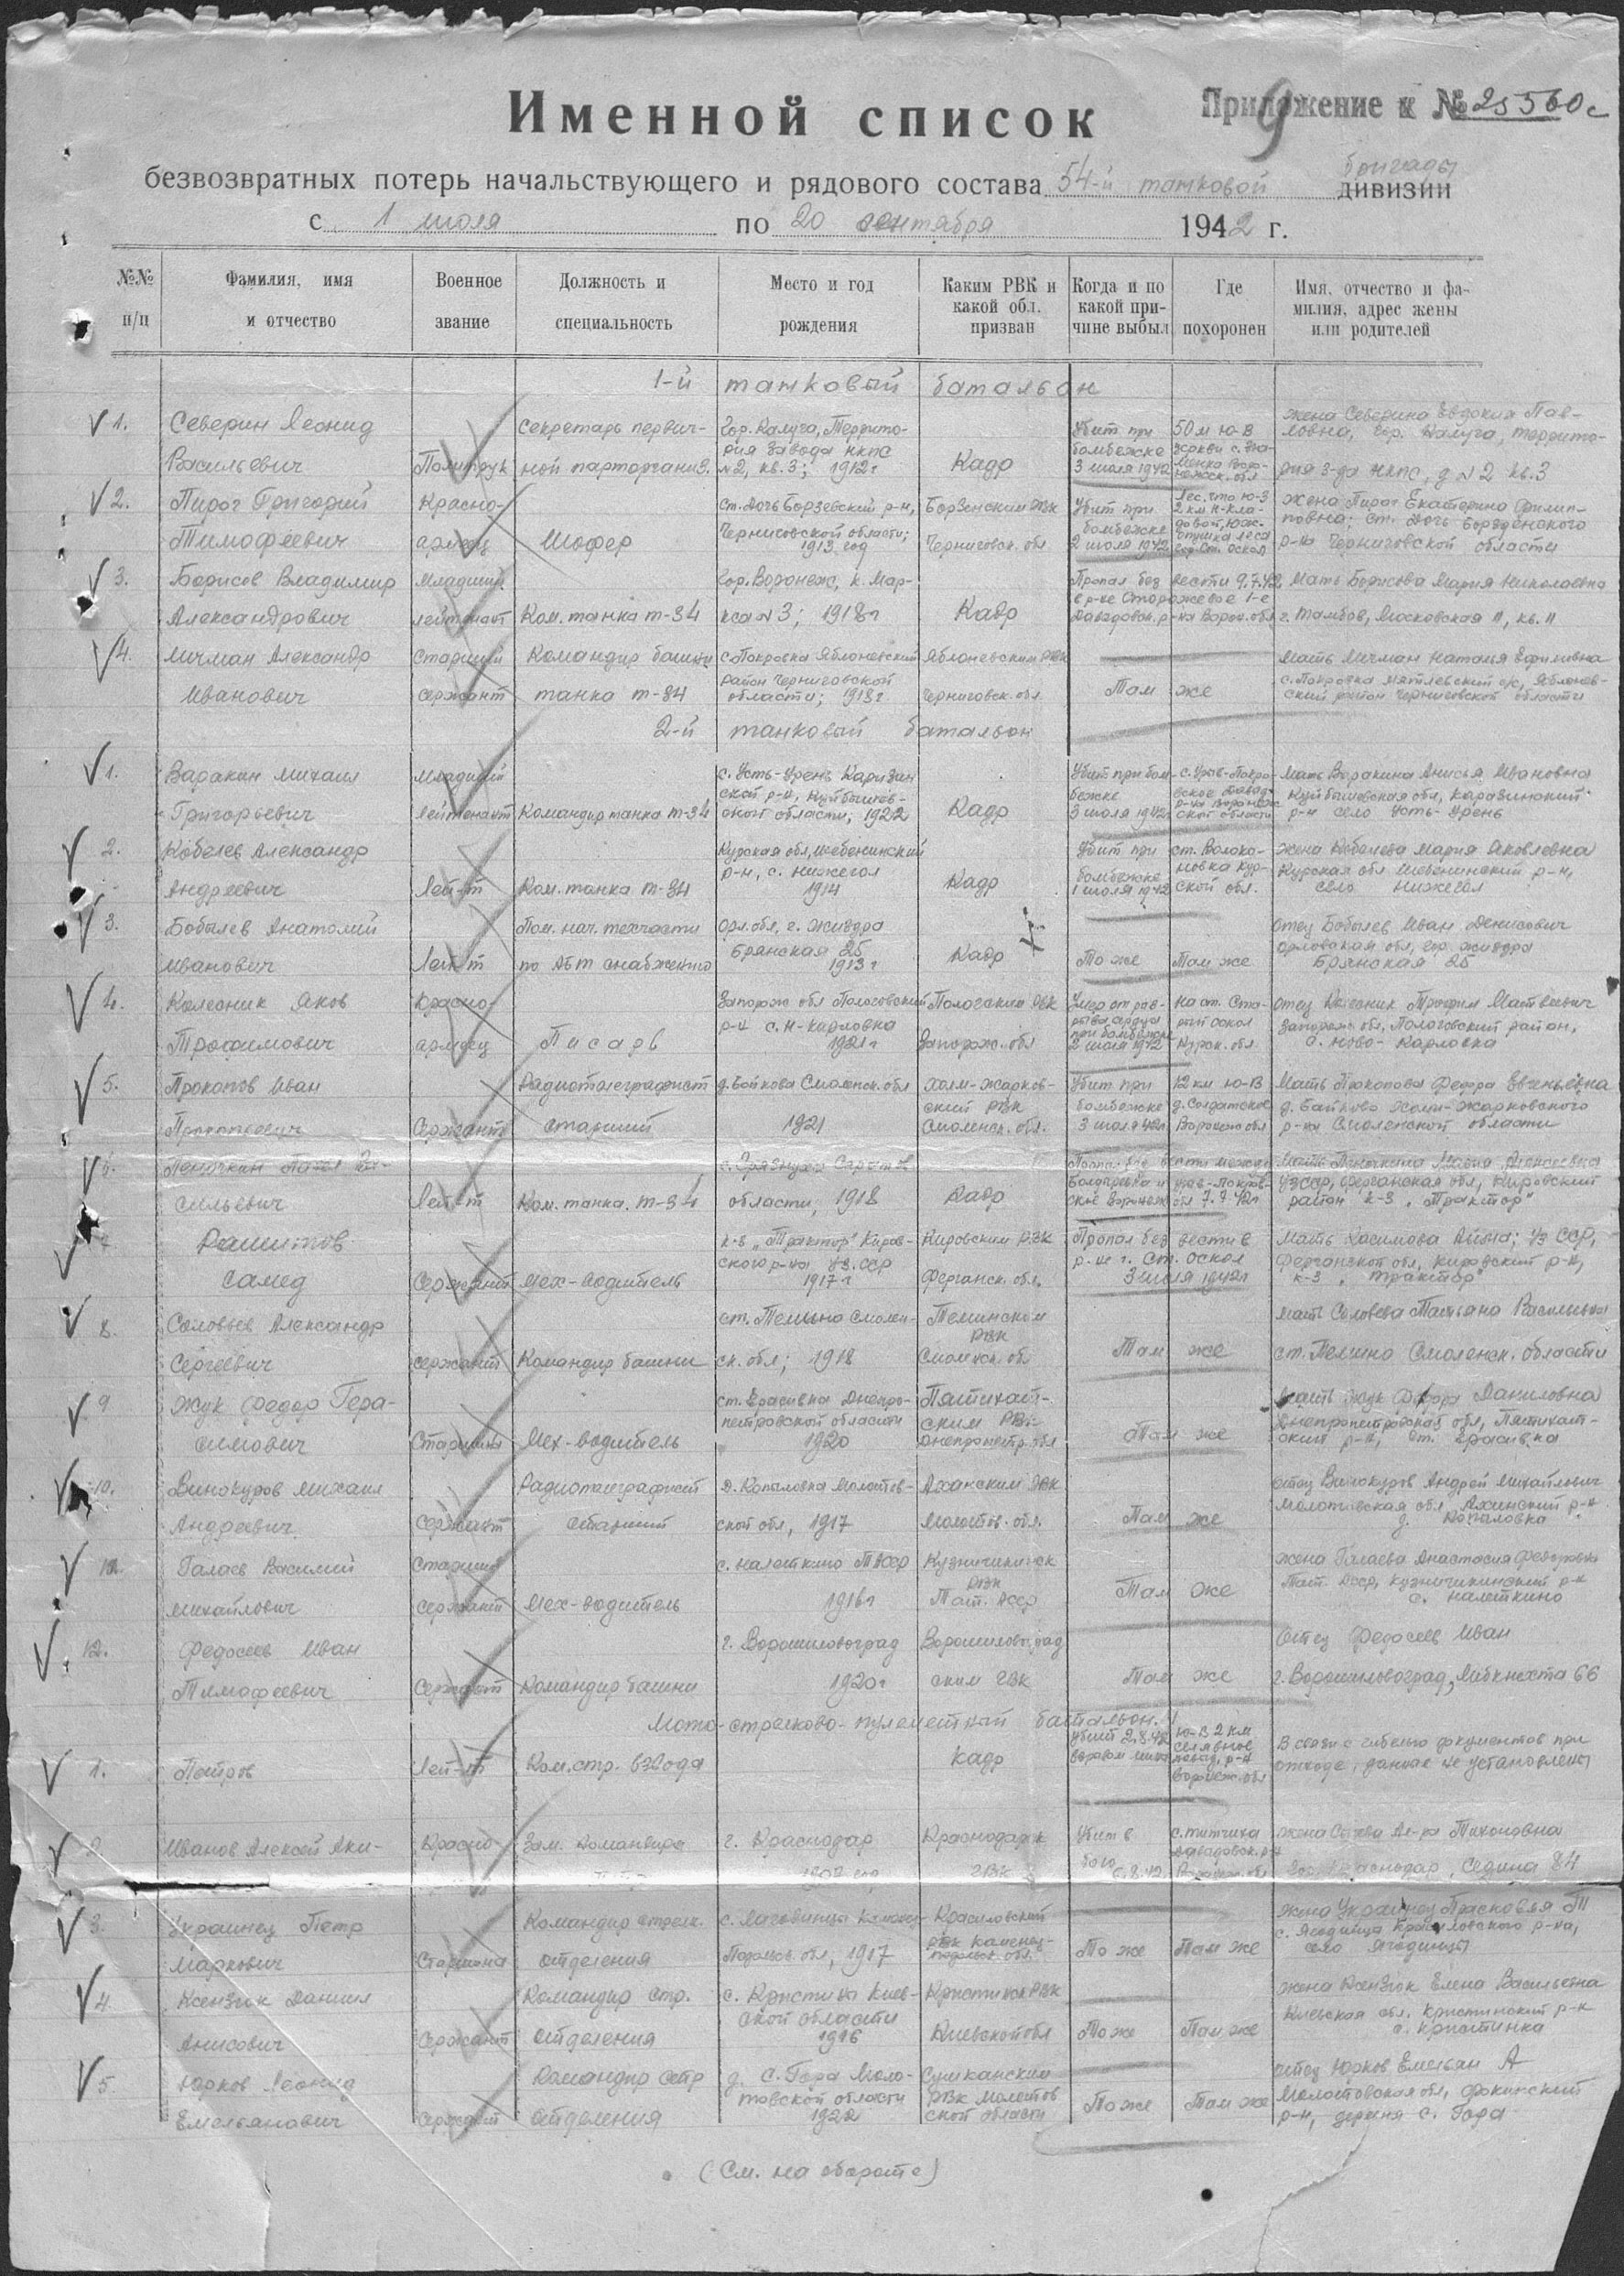 Приложение к № 25560с
9
Именной список
безвозвратных потерь начальствующего и рядового состава 54-й танковой дивизии бригады
с 1 июля по 20 сентября 1942 г.
№№ п/п | Фамилия, имя и отчество | Военное звание | Должность и специальность | Место и год рождения | Каким РВК и какой обл. призван | Когда и по какой причине выбыл | Где похоронен | Имя, отчество и фамилия, адрес жены или родителей
1-й танковый батальон
1. Северин Леонид Васильевич | Политрук | Секретарь первичной парторганиз. | Гор. Калуга, Территория завода НКПС №2, кв. 3; 1912г | Кадр | Убит при бомбежке 3 июля 1942 | 50 м Ю-В церкви с. | жена Северина Евдокия Павловна, гор. Калуга, территория з-да НКПС, д №2 кв. 3
2. Пирог Григорий Тимофеевич | Красноармеец | Шофер | ст. Дочь Борзенский р-н, Черниговской области; 1913 год | Борзенским РВК Черниговск. обл | Убит при бомбежке 2 июля 1942 | Лес, что Ю-З 2 км опушка леса гор. Ст. Оскол | жена Пирог Екатерина Филипповна; ст. Дочь Борзенского р-на Черниговской области
3. Борисов Владимир Александрович | Младший лейтенант | Ком. танка Т-34 | Гор. Воронеж, К. Маркса №3; 1918г | Кадр | Пропал без вести 9.7.42 в р-не Сторожевое 1-е Давыдовск. р-на Ворон. обл | Мать Борисова Мария Николаевна г. Тамбов, Московская 11, кв. 11
4. Мичман Александр Иванович | Старший сержант | Командир башни танка Т-34 | с. Покровка Яблоневский район Черниговской области; 1918г | Яблоневским РВК Черниговск. обл | Там же | Мать Мичман Наталья с. Покровка с/с, Яблоневский район Черниговской области
2-й танковый батальон
1. Варакин Михаил Григорьевич | Младший лейтенант | Командир танка Т-34 | с. Усть-Урень Каразинский р-н, Куйбышевской области, 1922 | Кадр | Убит при бомбежке 3 июля 1942 | с. Урыв-Покровское Давыд. р-на Воронежской области | Мать Варакина Анисья Ивановна Куйбышевская обл, Каразинский р-н село Усть-Урень
2. Кобелев Александр Андреевич | Лей-т | Ком. танка Т-34 | Курская обл, Шебекинский р-н, с. Нижегол 1914 | Кадр | Убит при бомбежке 1 июля 1942 | ст. Волоконовка Курской обл. | жена Кобелева Мария Яковлевна Курская обл Шебекинский р-н, село Нижегол
3. Бобылев Анатолий Иванович | Лей-т | Пом. нач. техчасти по АБТ снабжению | Орл. обл, г. Жиздра Брянская 25 1913г | Кадр | То же | Там же | отец Бобылев Иван Денисович Орловская обл, гор. Жиздра Брянская 25
4. Колесник Яков Трофимович | Красноармеец | Писарь | Запорож обл Пологовский р-н с. Н-Карловка 1921г | Пологским РВК Запорож. обл | Умер от разрыва сердца при бомбежке 2 июля 1942 | на ст. Старый Оскол Курск. обл. | отец Колесник Трофим Матвеевич Запорож обл, Пологовский район, с. Ново-Карловка
5. Прокопов Иван Прокопьевич | Сержант | Радиотелеграфист старший | д. Бойкова Смоленск. обл 1921 | Холм-Жарковский РВК Смоленск. обл. | Убит при бомбежке 3 июля 42г | 12 км Ю-В д. Солдатское Воронеж обл | Мать Прокопова д. Байково Холм-Жарковского р-на Смоленской области
6. Пеночкин Павел Васильевич | Лей-т | Ком. танка. Т-34 | области, 1918 | Кадр | Пропал без вести между Болдыревка и Урыв-Покровское Воронеж обл 7.7.42г | Мать Пеночкина Мария Алексеевна УзССР, Ферганская обл, Кировский район к-з "Трактор"
7. Рашитов Самед | Сержант | Мех-водитель | к-з "Трактор" Кировского р-на Уз. ССР 1917г | Кировским РВК Ферганск. обл. | Пропал без вести в р-не г. Ст. Оскол 3 июля 1942г | Мать Касимова Уз ССР, Ферганской обл, Кировский р-н, к-з "Трактор"
8. Соловьев Александр Сергеевич | сержант | Командир башни | ст. Смоленск. обл; 1918 | РВК Смоленск. обл | Там же | мать Соловьева Татьяна Васильевна ст. Смоленск. области
9. Жук Федор Герасимович | Старшина | Мех-водитель | ст. Ерасивка Днепропетровской области 1920 | Пятихатским РВК Днепропетр. обл | Там же | мать Жук Даниловна Днепропетровская обл, Пятихатский р-н, ст. Ерасивка
10. Винокуров Михаил Андреевич | Сержант | Радиотелеграфист старший | д. Копаловка Молотовской обл, 1917 | РВК Молотов. обл. | Там же | отец Винокуров Андрей Михайлович Молотовская обл, р-н д. Копаловка
11. Галаев Василий Михайлович | Старший сержант | Мех-водитель | с. Налеткино ТАССР 1916г | РВК Тат. АССР | Там же | жена Галаева Анастасия Федоровна Тат. АССР, р-н с. Налеткино
12. Федосеев Иван Тимофеевич | Сержант | Командир башни | г. Ворошиловоград 1920г | Ворошиловоградским ГВК | Там же | отец Федосеев Иван г. Ворошиловоград, Либкнехта 66
Мото-стрелково-пулеметный батальон.
1. Петров | Лей-т | Ком. стр. взвода | Кадр | Убит 2.8.42 | Ю-В 2 км р-н Воронеж. обл | В связи с гибелью документов при отходе, данные не установлены
2. Иванов Алексей Аки- | Красно- | Зам. командира | г. Краснодар | Краснодарск ГВК | Убит в бою 6.8.42 | с. Титчиха Давыдовск. р-н Воронеж. обл | жена Тихоновна Гор. Краснодар, Седина 84
3. Украинец Петр Маркович | Старшина | Командир стрелк. отделения | с. Подольск. обл, 1917 | Красиловский РВК Каменец-Подольск. обл. | То же | Там же | жена Украинец Прасковья Т с. Красиловского р-на, село Ягодинцы
4. Ксензюк Даниил Анисович | Сержант | Командир стр. отделения | с. Кристинка Киевской области 1916 | РВК Киевской обл | То же | Там же | жена Ксензюк Елена Васильевна Киевская обл. р-н с. Кристинка
5. Юрков Леонид Емельянович | сержант | Командир стр отделения | д. С. Гора Молотовской области 1922 | РВК Молотовской области | То же | Там же | отец Юрков Емельян А Молотовская обл, Фокинский р-н, деревня С. Гора
(См. на обороте)